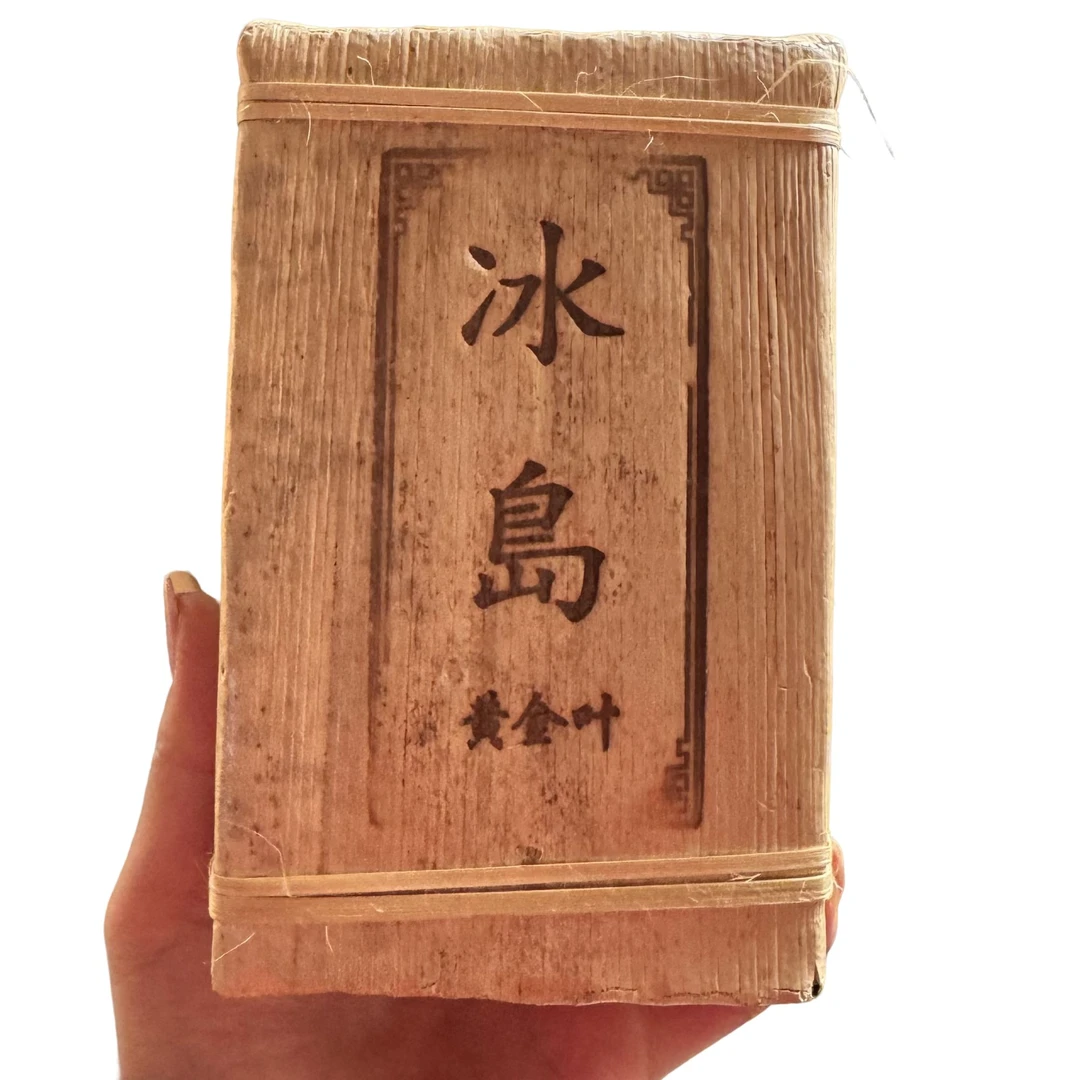 冰島
黄金叶